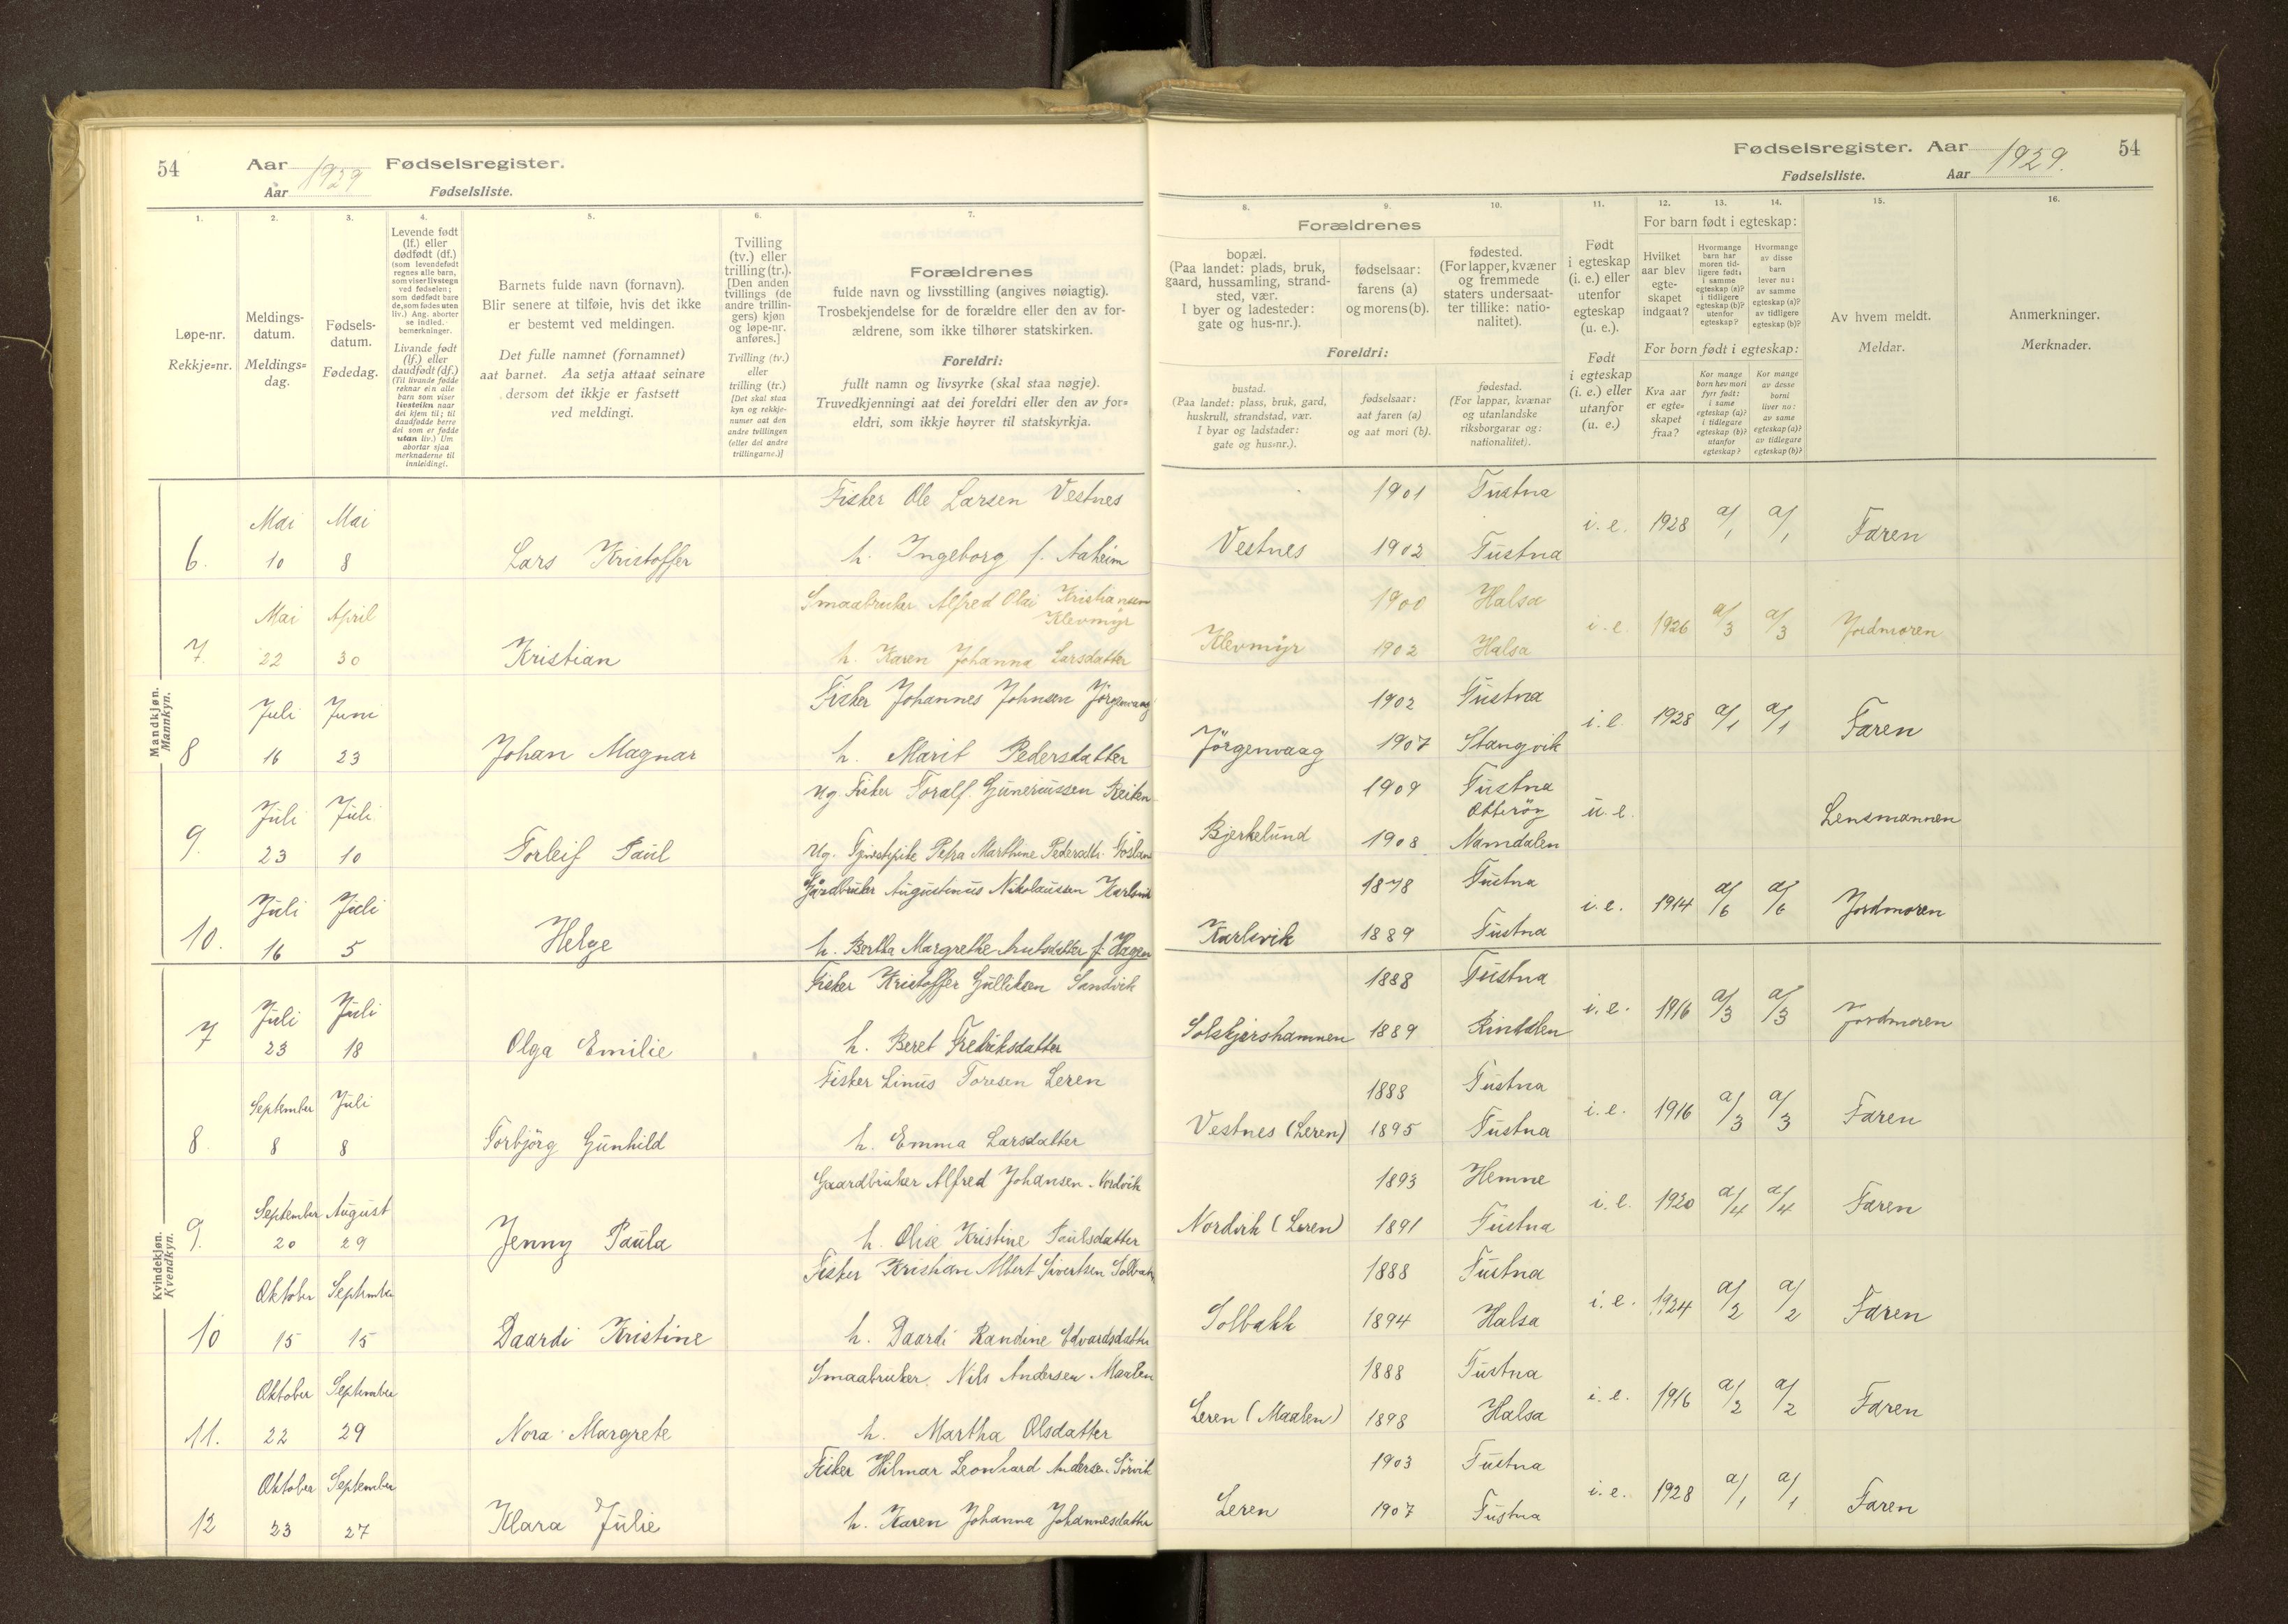 54 Aar 1929 Fødselsregister.
Aar Fødselsliste.
Fødselsregister. Aar 1929. 54
Fødselsliste. Aar
1. 2. 3. 4. 5. 6. 7.
Løpe-nr.
Rekkje=nr.
Meldings-
datum.
Meldings=
dag.
Fødsels-
datum.
Fødedag.
Levende født
(lf.) eller
dødfødt (df.)
(som levendefødt
regnes alle barn,
som viser livstegn
ved fødselen;
som dødfødt bare
de, som fødes uten
liv.) Ang. aborter
se indled.
bemerkninger.
Livande født
(lf.) eller
daudfødt (df.)
(Til livande fødde
reknar ein alle
barn som viser
livsteikn naar
dei kjem til; til
daudfødde berre
dei som er fødde
utan liv.) Um
abortar sjaa
merknaderne til
innleidingi.
Barnets fulde navn (fornavn).
Blir senere at tilføie, hvis det ikke
er bestemt ved meldingen.
Det fulle namnet (fornamnet)
aat barnet. Aa setja attaat seinare
dersom det ikkje er fastsett
ved meldingi.
Tvilling
(tv.) eller
trilling (tr.).
[Den anden
tvillings (de
andre trillin-
gers) kjøn
og løpe-nr.
anføres.]
Tvilling (tv.)
eller
trilling (tr.)
[Det skal staa
kyn og rekkje-
numer aat den
andre tvillingen
(eller dei andre
trillingarne.)]
Forældrenes
fulde navn og livsstilling (angives nøiagtig).
Trosbekjendelse for de forældre eller den av for-
ældrene, som ikke tilhører statskirken.
Foreldri:
fullt namn og livsyrke (skal staa nøgje).
Truvedkjenningi aat dei foreldri eller den av for=
eldri, som ikkje høyrer til statskyrkja.
8. 9. 10. 11. 12. 13. 14. 15. 16.
Forældrenes
bopæl.
(Paa landet: plads, bruk,
gaard, hussamling, strand-
sted, vær.
I byer og ladesteder:
gate og hus-nr.).
fødselsaar:
farens (a)
og morens (b).
fødested.
(For lapper, kvæner
og fremmede
staters undersaat-
ter tillike: natio-
nalitet).
Foreldri:
bustad.
(Paa landet: plass, bruk, gard,
huskrull, strandstad, vær.
I byar og ladstader:
gate og hus=nr.).
fødselsaar:
aat faren (a)
og aat mori (b).
fødestad.
(For lappar, kvænar
og utanlandske
riksborgarar og:
nationalitet).
Født
i egteskap
(i. e.) eller
utenfor
egteskap
(u. e.).
Født
i egteskap
(i. e.) eller
utanfor
(u. e.)
For barn født i egteskap:
Hvilket
aar blev
egte-
skapet
indgaat?
Hvormange
barn har
moren tid-
ligere født:
i samme
egteskap (a)?
i tidligere
egteskap (b)?
utenfor
egteskap?
Hvormange
av disse
barn
lever nu:
av samme
egteskap (a)?
av tidligere
egteskap (b)?
For born født i egteskap:
Kva aar
er egte=
skapet
fraa?
Kor mange
born hev mori
fyrr født:
i same
egteskap (a)?
i tidlegare
egteskap (b)?
utanfor
egteskap?
Kor mange
av desse
borni
liver no:
av same
egteskap (a)?
av tidlegare
egteskap (b)?
Av hvem meldt.
Meldar.
Anmerkninger.
Merknader.
Mandkjøn.
Mannkyn.
Mai Mai Fisker Ole Larsen Vestnes 1901 Tustna
6. 10 8 Lars Kristoffer h. Ingeborg f. Aaheim Vestnes 1902 Tustna i. e. 1928 a/1 a/1 Faren
Mai April Smaabruker Alfred Olai Kristiansen 1900 Halsa
Klevmyr
7. 22 30 Kristian h. Karen Johanna Larsdatter Klevmyr 1902 Halsa i. e. 1926 a/3 a/3 Jordmoren
Juli Juni Fisker Johannes Johnsen Jörgenvaag 1902 Tustna
8 16 23 Johan Magnar h. Marit Pedersdatter Jörgenvaag 1907 Stangvik i. e. 1928 a/1 a/1 Faren
Juli Juli Ug Fisker Toralf Guneriussen Reiten 1909 Tustna
Otterøy
9. 23 10 Torleif Paul Ug. Tjenestepike Petra Marthine Pedersdtr. Bjerkelund 1908 Namdalen u. e. Lensmannen
Juli Juli Gårdbruker Augustinus Nikolaussen Karlsvik 1878 Tustna
10. 16 5 Helge h. Bertha Margrethe Knutsdatter f. Hagen Karlsvik 1889 Tustna i. e. 1914 a/6 a/6 Jordmoren
Kvindekjøn.
Kvendkyn.
Juli Juli Fisker Kristoffer Gulliksen Sandvik 1888 Tustna
7 23 18 Olga Emilie h. Beret Fredriksdatter Solskjershamnen 1889 Rindalen i. e. 1916 a/3 a/3 Jordmoren
September Juli Fisker Linus Toresen Leren 1888 Tustna
8. 8 8 Torbjörg Gunhild h. Emma Larsdatter Vestnes (Leren) 1895 Tustna i. e. 1916 a/3 a/3 Faren
September August Gaardbruker Alfred Johansen Nordvik 1893 Hemne
9. 20 29 Jenny Paula h. Olise Kristine Paulsdatter Nordvik (Leren) 1891 Tustna i. e. 1920 a/4 a/4 Faren
Oktober September Fisker Kristian Albert Sivertsen Solbakk 1888 Tustna
10 15 15 Daardi Kristine h. Daardi Randine Edvardsdatter Solbakk 1894 Halsa i. e. 1924 a/2 a/2 Faren
Oktober September Smaabruker Nils Andersen Maalen 1888 Tustna
11. 22 29 Nora Margrete h. Martha Olsdatter Leren (Maalen) 1898 Halsa i. e. 1916 a/2 a/2 Faren
Oktober September Fisker Hilmar Leonhard Andersen Sörvik 1903 Tustna
12 23 27 Klara Julie h. Karen Johanna Johannesdatter Leren 1907 Tustna i. e. 1928 a/1 a/1 Faren